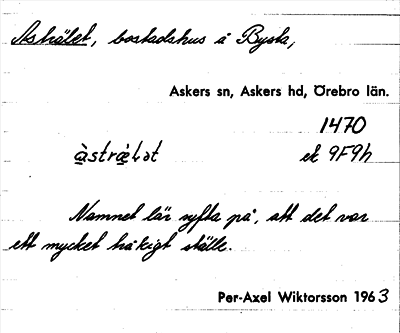 Asträlet, bostadshus å Bysta,
Askers sn, Askers hd, Örebro län.
1470
àsträ́lət ek 9F9h
Namnet lär syfta på, att det var
ett mycket tråkigt ställe.
Per-Axel Wiktorsson 1963